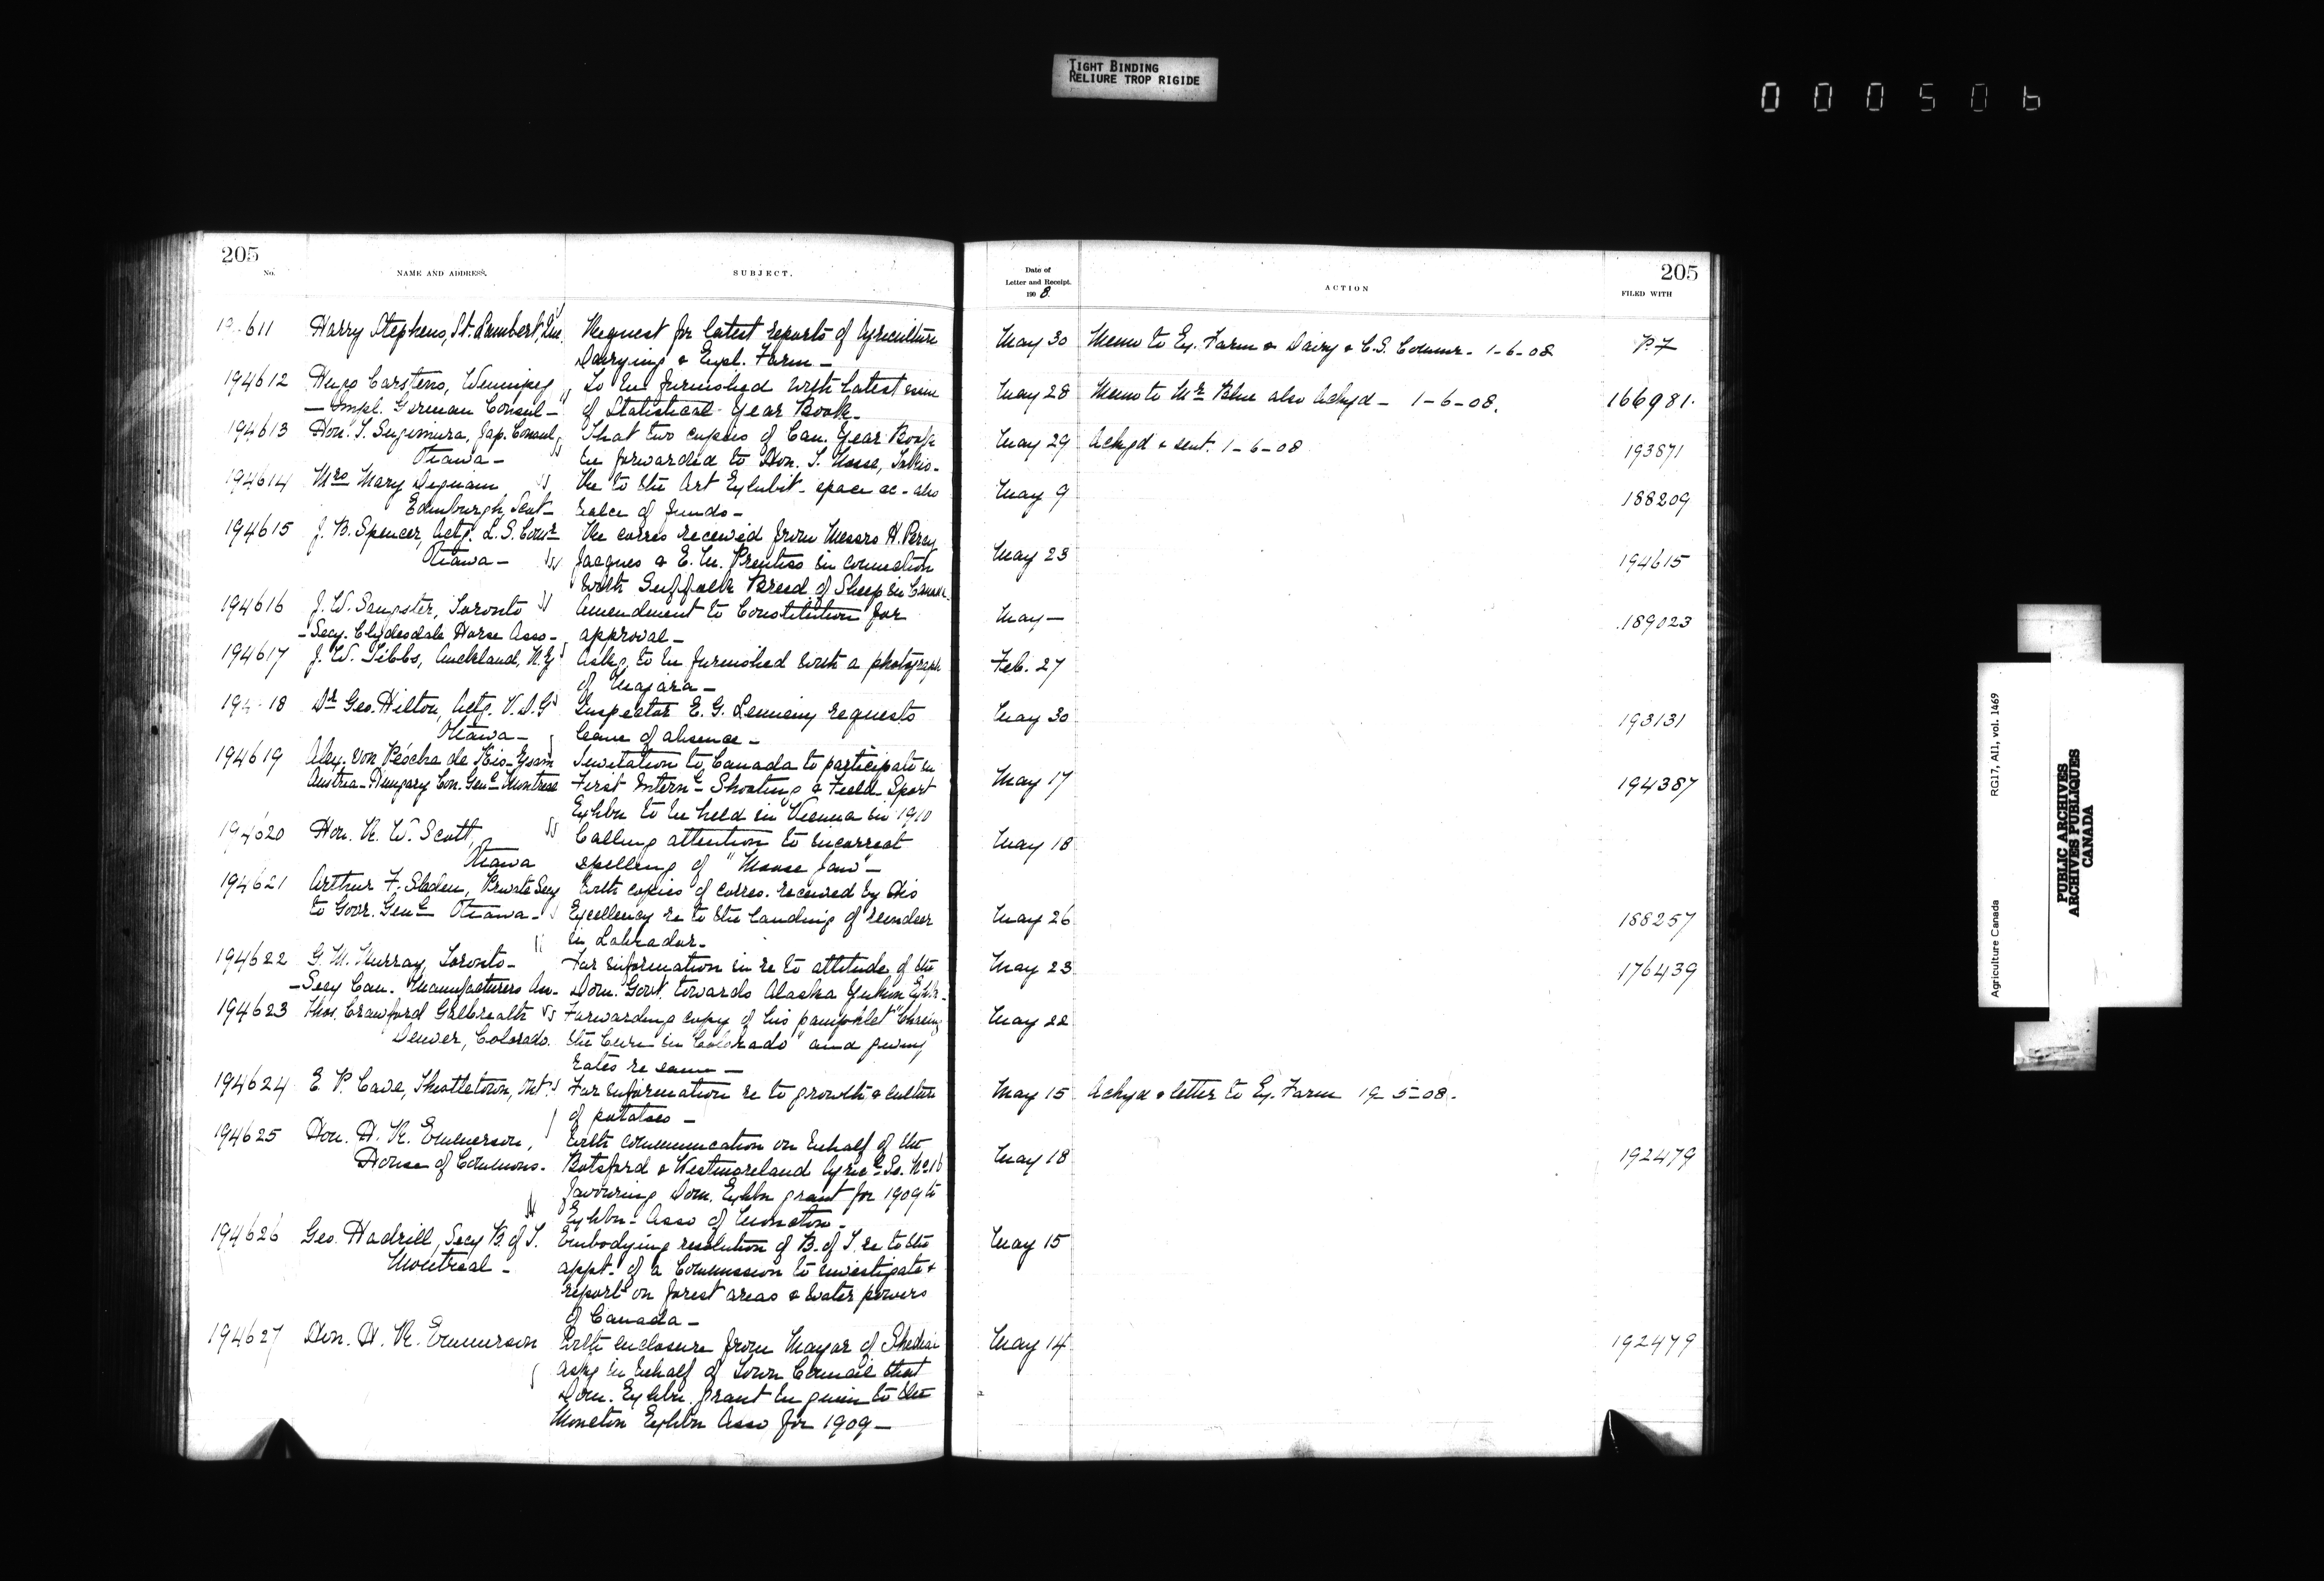 TIGHT BINDING
RELIURE TROP RIGIDE
000506
205
No.
NAME AND ADDRESS.
SUBJECT.
Date of
Letter and Receipt.
1908.
ACTION
205
FILED WITH
611 Harry Stephens, St. Lambert, Que. Request for latest reports of Agriculture May 30 Memo to Ex. Farm & Dairy & C.S. Commr. 1-6-08 P.7
Dairying & Expl. Farm -
194612 Hugo Carstens, Winnipeg, To be furnished with latest issue May 28 Memo to Mr Blue also Ackgd - 1-6-08. 166981.
- Impl. German Consul - of Statistical Year Book -
194613 Hon. T. Nosse, Jap. Consul, That two copies of Can. Year Book May 29 Ackgd & sent. 1-6-08 193871
Ottawa - be forwarded to Hon. T. Nosse, Tokio -
194614 Mrs Mary Dignam Re to the Art Exhibit - space &c - also May 9 188209
Edinburgh, Scot - balce of funds -
194615 J. B. Spencer, Actg. L.S. Comr Re corres received from Messrs H. Percy May 23 194615
Ottawa - Jacques & E. M. Prentiss in connection
with Suffolk Breed of Sheep in Canada -
194616 J. W. Sangster, Toronto Amendment to Constitution for May - 189023
- Secy. Clydesdale Horse Asso - approval -
194617 J. W. Tibbs, Auckland, N.Z. Askg to be furnished with a photograph Feb. 27
of Niagara -
194 18 Dr Geo. Hilton, Actg. V.D.G. Inspector E. G. Lemieny requests May 30 193131
Ottawa - leave of absence -
194619 Alex. von Pécska de Kis- Austria-Hungary Con. Genl Montreal Invitation to Canada to participate in May 17 194387
First Internl Shooting & Field Sport
Exhbn to be held in Vienna in 1910
194620 Hon. R. W. Scott, Calling attention to incorrect May 18
Ottawa spelling of "Moose Jaw" -
194621 Arthur F. Sladen, Private Secy With copies of corres. received by His May 26 188257
to Govr. Genl Ottawa - Excellency re to the landing of reindeer
in Labrador -
194622 G. M. Murray, Toronto - For information in re to attitude of the May 23 176439
- Secy Can. Manufacturers An - Dom. Govt. towards Alaska Yukon Exhbn -
194623 Thos. Crawford Galbreath Forwarding copy of his pamphlet "Chasing May 22
Denver, Colorado. the Cure in Colorado" and giving
rates re same -
194624 E. P. Cave, Theatletown, Ont. For information re to growth & culture May 15 Ackgd & letter to Ex. Farm 19-5-08.
of potatoes -
194625 Hon. H. R. Emmerson, With communication on behalf of the May 18 192479
House of Commons. Botsford & Westmoreland Agricl So. No 16
favouring Dom. Exhbn grant for 1909 to
Exhbn - Asso of Moncton -
194626 Geo. Hadrill, Secy B. of T. Embodying resolution of B. of T. re to the May 15
Montreal - appt. of a Commission to investigate &
report on forest areas & water powers
of Canada -
194627 Hon. H. R. Emmerson With enclosure from Mayor of Shediac May 14 192479
askg in behalf of Town Council that
Dom. Exhbn. grant be given to the
Moncton Exhbn Asso for 1909 -
Agriculture Canada
RG17, AII, vol. 1469
PUBLIC ARCHIVES
ARCHIVES PUBLIQUES
CANADA